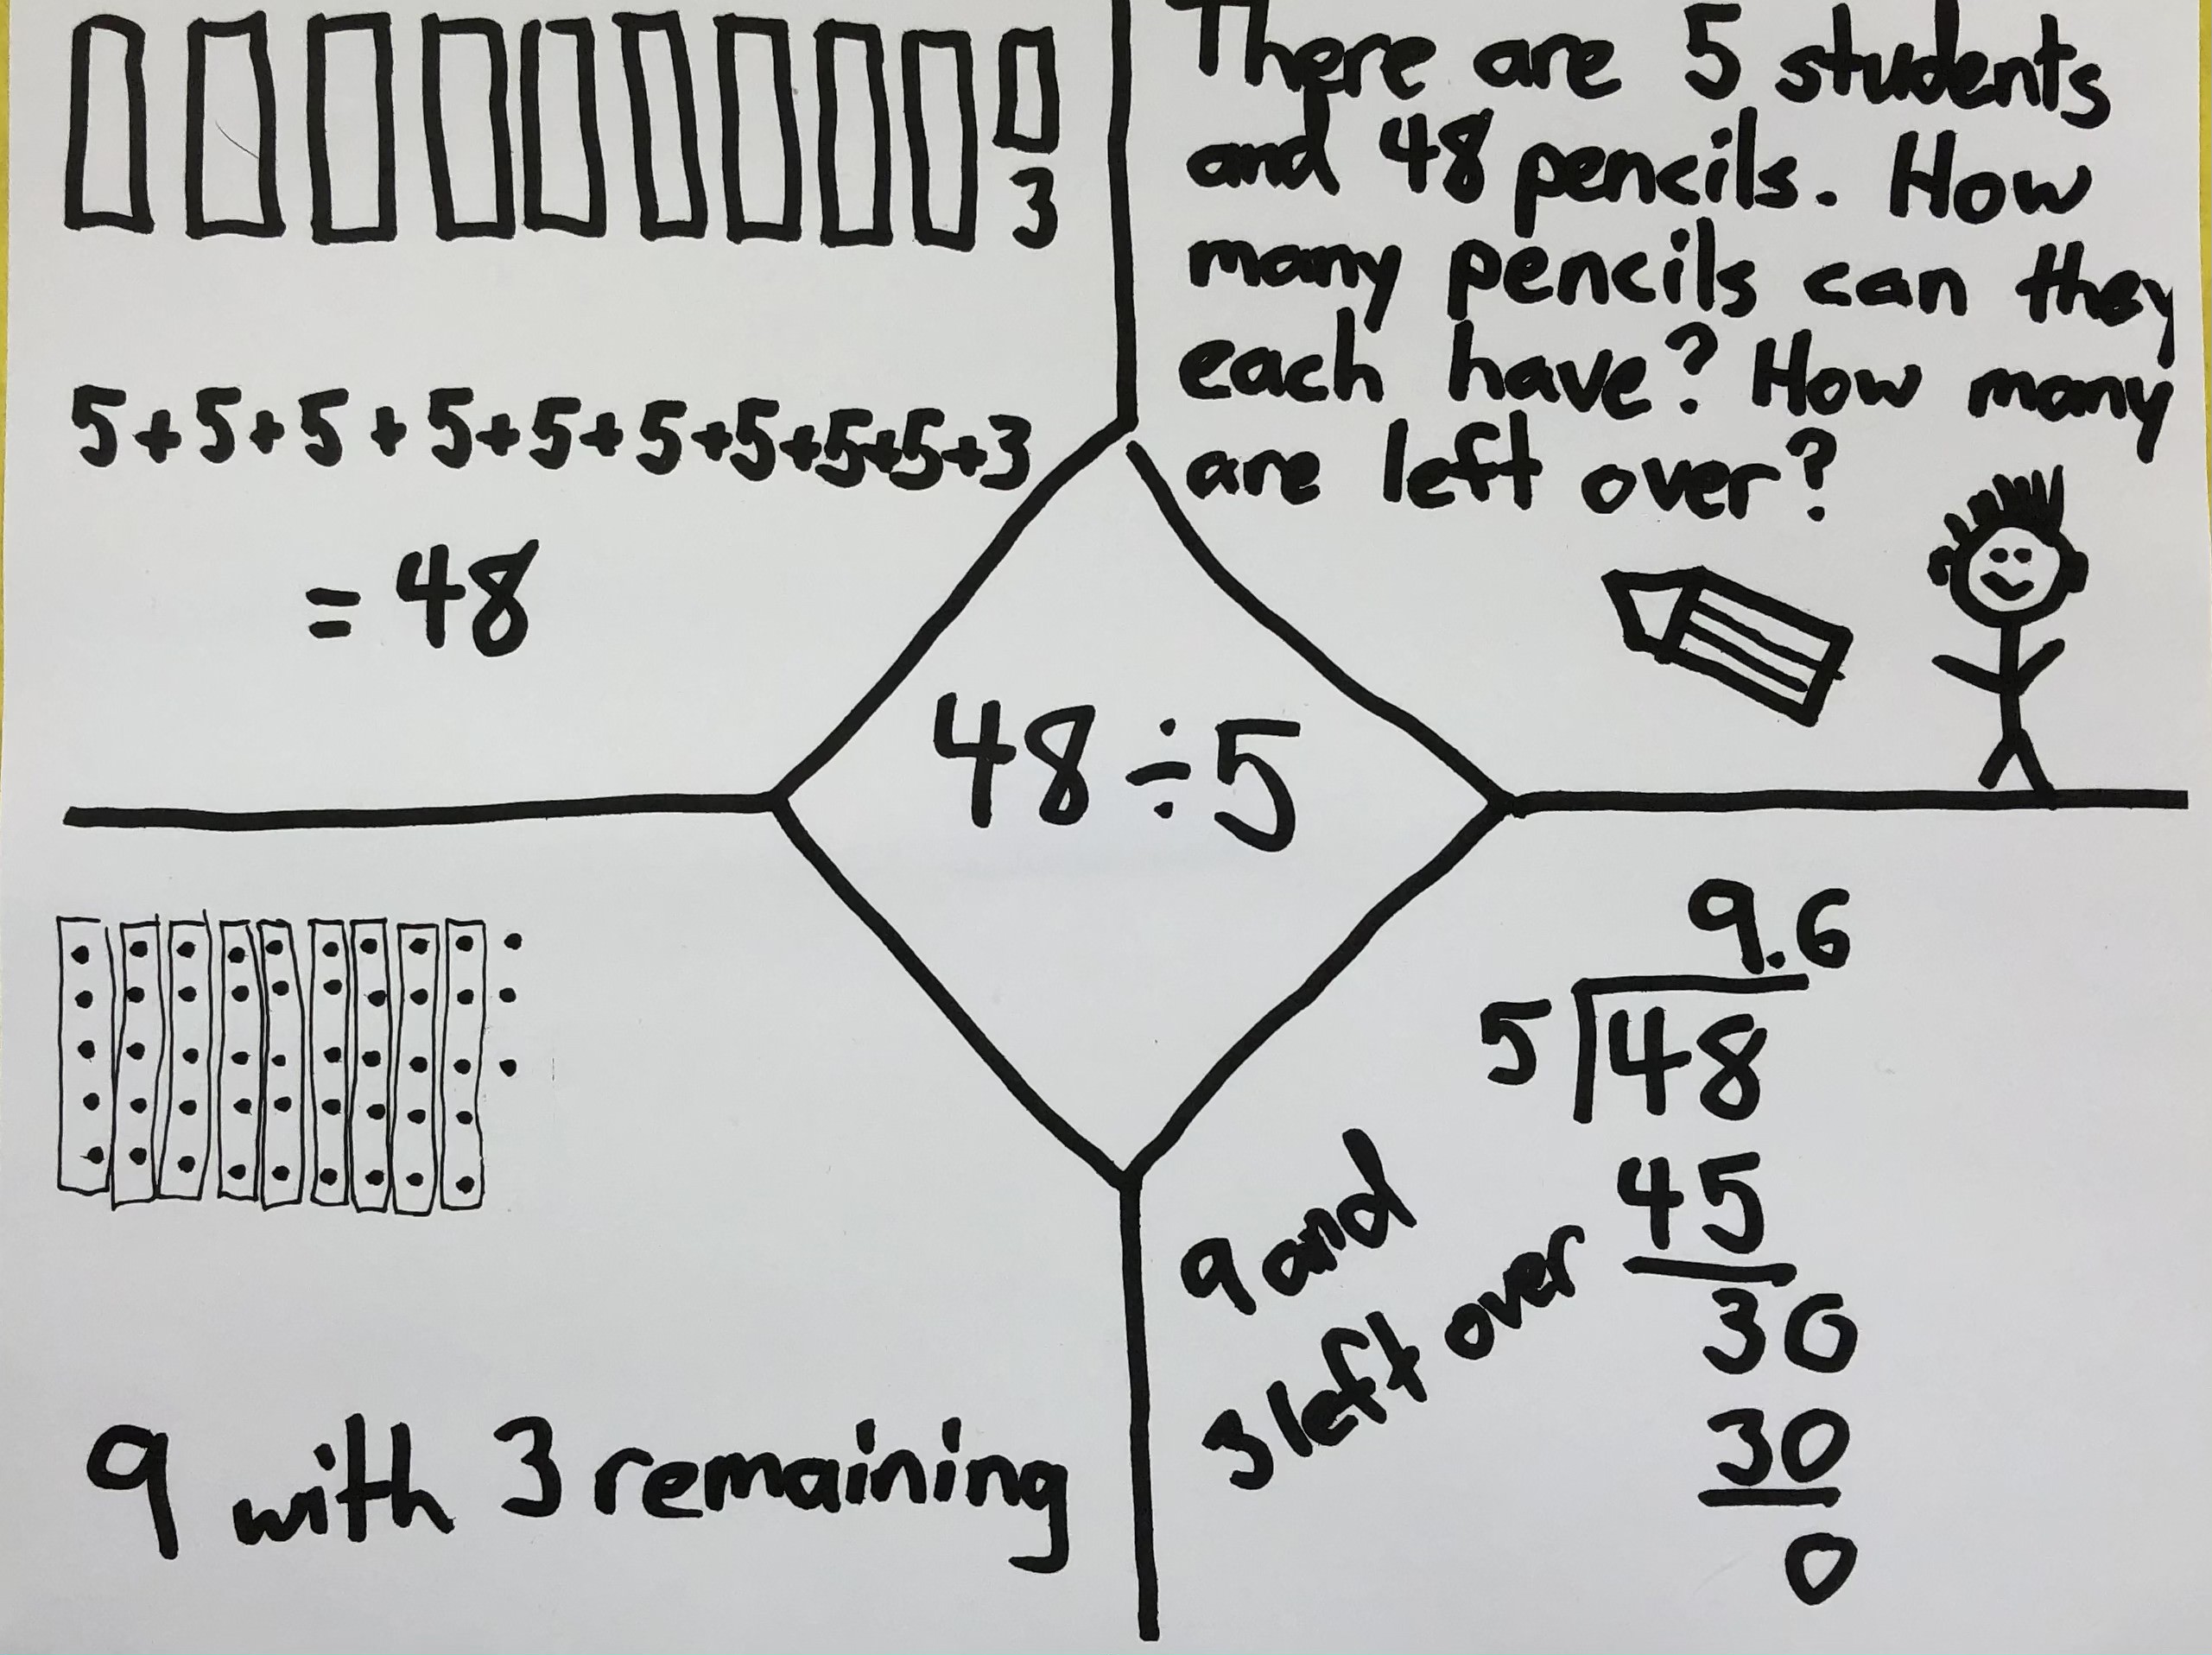 3
5+5+5+5+5+5+5+5+5+3
=48
There are 5 students
and 48 pencils. How
many pencils can they
each have? How many
are left over?
48÷5
9 with 3 remaining
9 and
3 left over
9.6
5 48
45
30
30
0